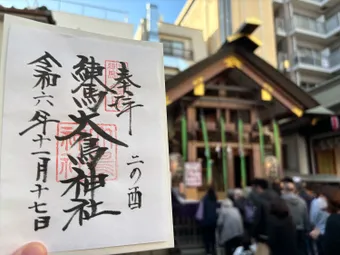 二の酉
奉拝
練馬大鳥神社
令和六年十一月十七日